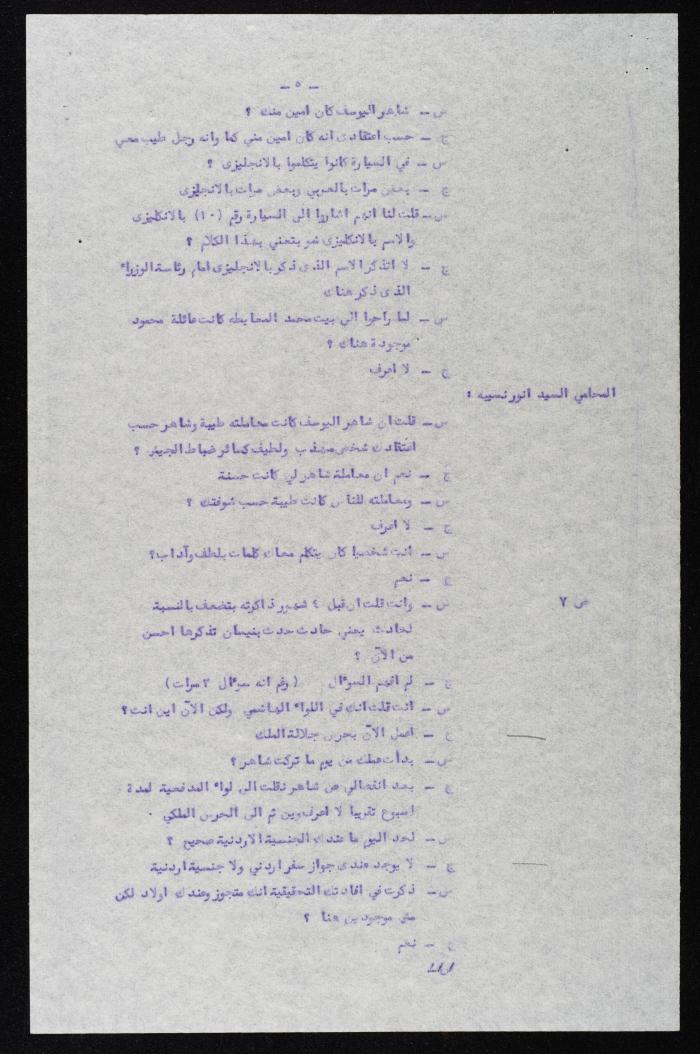 — ٥ —
س — شاهر اليوسف كان امين منك ؟
ج — حسب اعتقادى انه كان امين مني كما وانه رجل طيب معي
س — في السيارة كانوا يتكلموا بالانجليزى ؟
ج — بعض مرات بالعربي وبعض مرات بالانجليزى
س — قلت لنا انهم اشاروا الى السيارة رقم (١٠) بالانكليزى
والاسم بالانكليزى شو بتعني بهذا الكلام ؟
ج — لا اتذكر الاسم الذى ذكر بالانجليزى امام رئاسة الوزراء
الذى ذكر هناك
س — لما راحوا الى بيت محمد المعايطه كانت عائلة محمود
موجودة هناك ؟
ج — لا اعرف
المحامي السيد انور نسيبه :
س — قلت ان شاهر اليوسف كانت معاملته طيبة وشاهر حسب
اعتقادك شخص مهذب ولطيف كسائر ضباط الجيش ؟
ج — نعم ان معاملة شاهر لي كانت حسنة
س — ومعاملته للناس كانت طيبة حسب شوفتك ؟
ج — لا اعرف
س — انت شخصيا كان يتكلم معاك كلمات بلطف وآداب ؟
ج — نعم
ص ٧
س — وانت قلت ان قبل ٤ شهور ذاكرته بتضعف بالنسبة
لحادث يعني حادث حدث بنيسان تذكرها احسن
من الآن ؟
ج — لم افهم السوءال (رغم انه سوءال ٣ مرات)
س — انت قلت انك في اللواء الهاشمي ولكن الآن اين انت ؟
ج — اعمل الآن بحرس جلالة الملك
س — بدأت عملك من يوم ما تركت شاهر ؟
ج — بعد انفصالي عن شاهر نقلت الى لواء المدفعية لمدة
اسبوع تقريبا لا اعرف ومن ثم الى الحرس الملكي .
س — لحد اليوم ما عندك الجنسية الاردنية صحيح ؟
ج — لا يوجد عندى جواز سفر اردني ولا جنسية اردنية
س — ذكرت في افادتك التحقيقية انك متجوز وعندك اولاد لكن
مش موجودين هنا ؟
ج — نعم